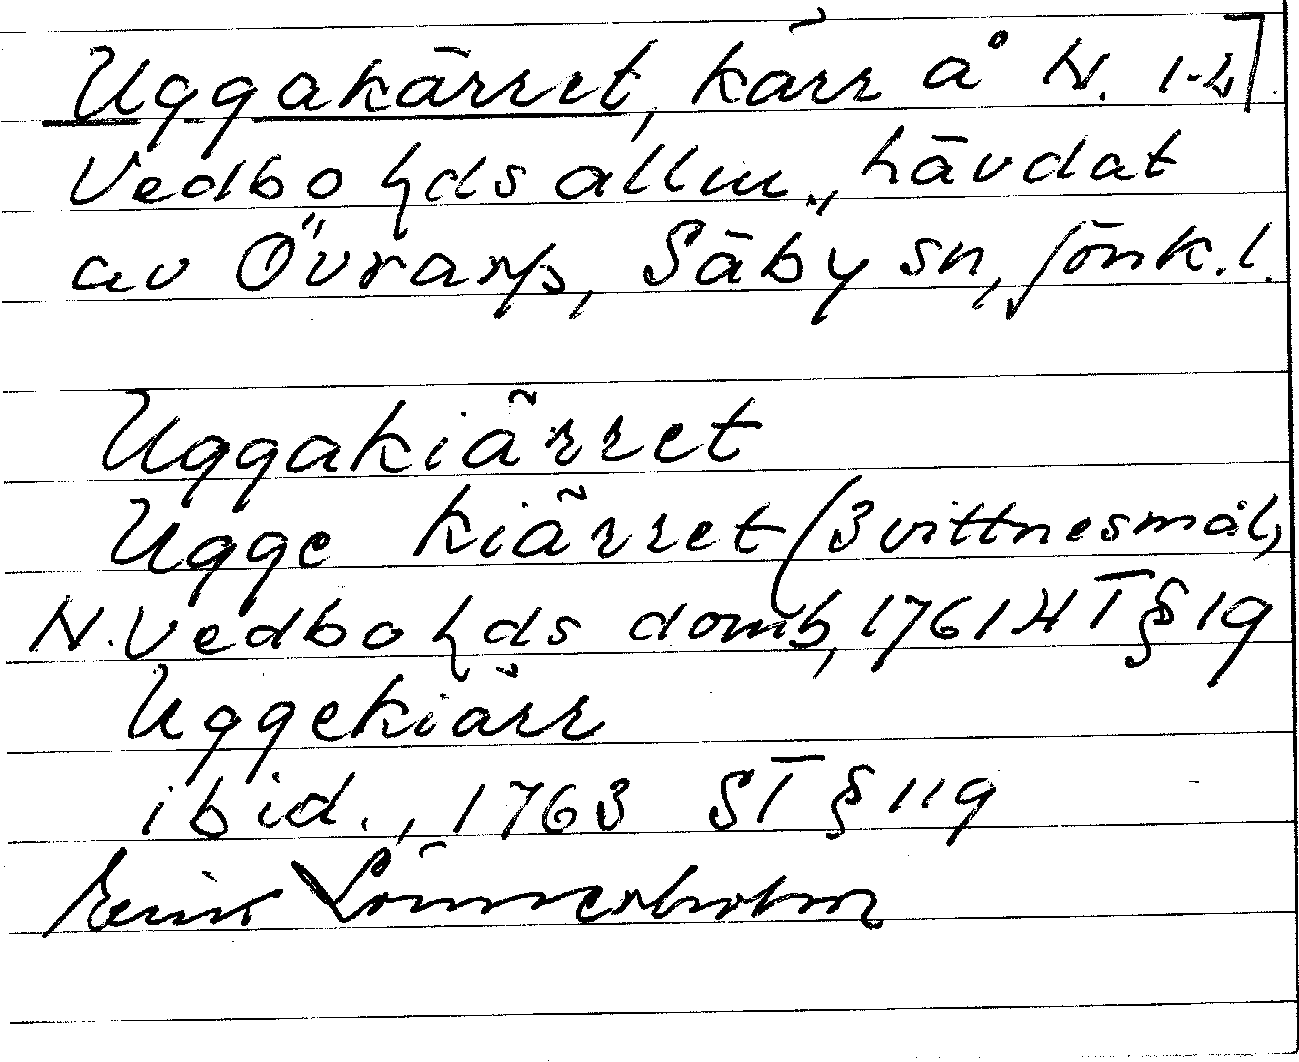 Uggakärret, kärr å N. 1-2]
Vedbo hds allm., hävdat
av Övrarp, Säby sn, Jönk. l.
Uggakiärret
Ugge kiärret (3 vittnesmål)
N. Vedbo hds domb, 1761 HT § 19
Uggekiärr
ibid., 1763 ST § 119
Erik Lönnerholm